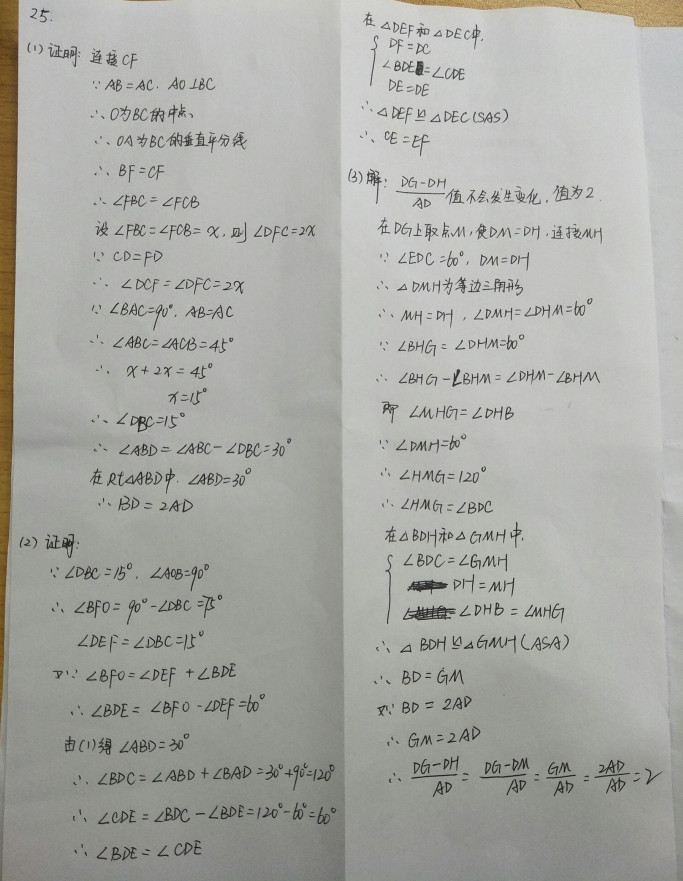 25.
(1) 证明: 连接CF
∵ AB=AC. AO⊥BC
∴ O为BC的中点
∴ OA为BC的垂直平分线
∴ BF=CF
∴ ∠FBC=∠FCB
设 ∠FBC=∠FCB= x, 则 ∠DFC=2x
∵ CD=FD
∴ ∠DCF=∠DFC=2x
∵ ∠BAC=90°. AB=AC
∴ ∠ABC=∠ACB=45°
∴ x+2x=45°
x=15°
∴ ∠DBC=15°
∴ ∠ABD=∠ABC-∠DBC=30°
在Rt△ABD中. ∠ABD=30°
∴ BD=2AD
(2) 证明:
∵ ∠DBC=15°. ∠AOB=90°
∴ ∠BFO=90°-∠DBC=75°
∠DEF=∠DBC=15°
又∵ ∠BFO=∠DEF+∠BDE
∴ ∠BDE=∠BFO-∠DEF=60°
由(1)得 ∠ABD=30°
∴ ∠BDC=∠ABD+∠BAD=30°+90°=120°
∴ ∠CDE=∠BDC-∠BDE=120°-60°=60°
∴ ∠BDE=∠CDE
在△DEF和△DEC中.
{ DF=DC
∠BDE=∠CDE
DE=DE
∴ △DEF≌△DEC(SAS)
∴ CE=EF
(3) 解: DG-DH/AD 值不会发生变化, 值为2.
在DG上取点M, 使DM=DH, 连接MH
∵ ∠EDC=60°, DM=DH
∴ △DMH为等边三角形
∴ MH=DH, ∠DMH=∠DHM=60°
∵ ∠BHG=∠DHM=60°
∴ ∠BHG-∠BHM=∠DHM-∠BHM
即 ∠MHG=∠DHB
∵ ∠DMH=60°
∴ ∠HMG=120°
∴ ∠HMG=∠BDC
在△BDH和△GMH中.
{ ∠BDC=∠GMH
DH=MH
∠DHB=∠MHG
∴ △BDH≌△GMH(ASA)
∴ BD=GM
又∵ BD=2AD
∴ GM=2AD
∴ DG-DH/AD = DG-DM/AD = GM/AD = 2AD/AD = 2